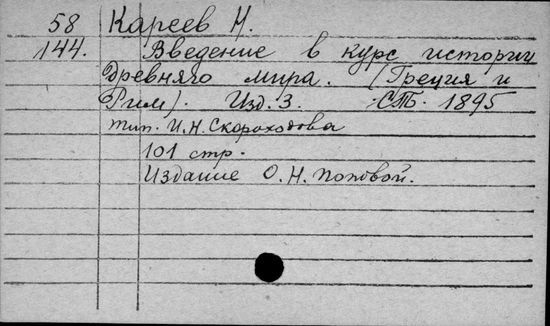 58 Кареев Н.
144. Введение в курс истории
Древняго мира. (Греция и
Рим). Изд. 3. СТб. 1895
тип. И.Н. Скороходова
101 стр.
Издание О.Н. Поповой.